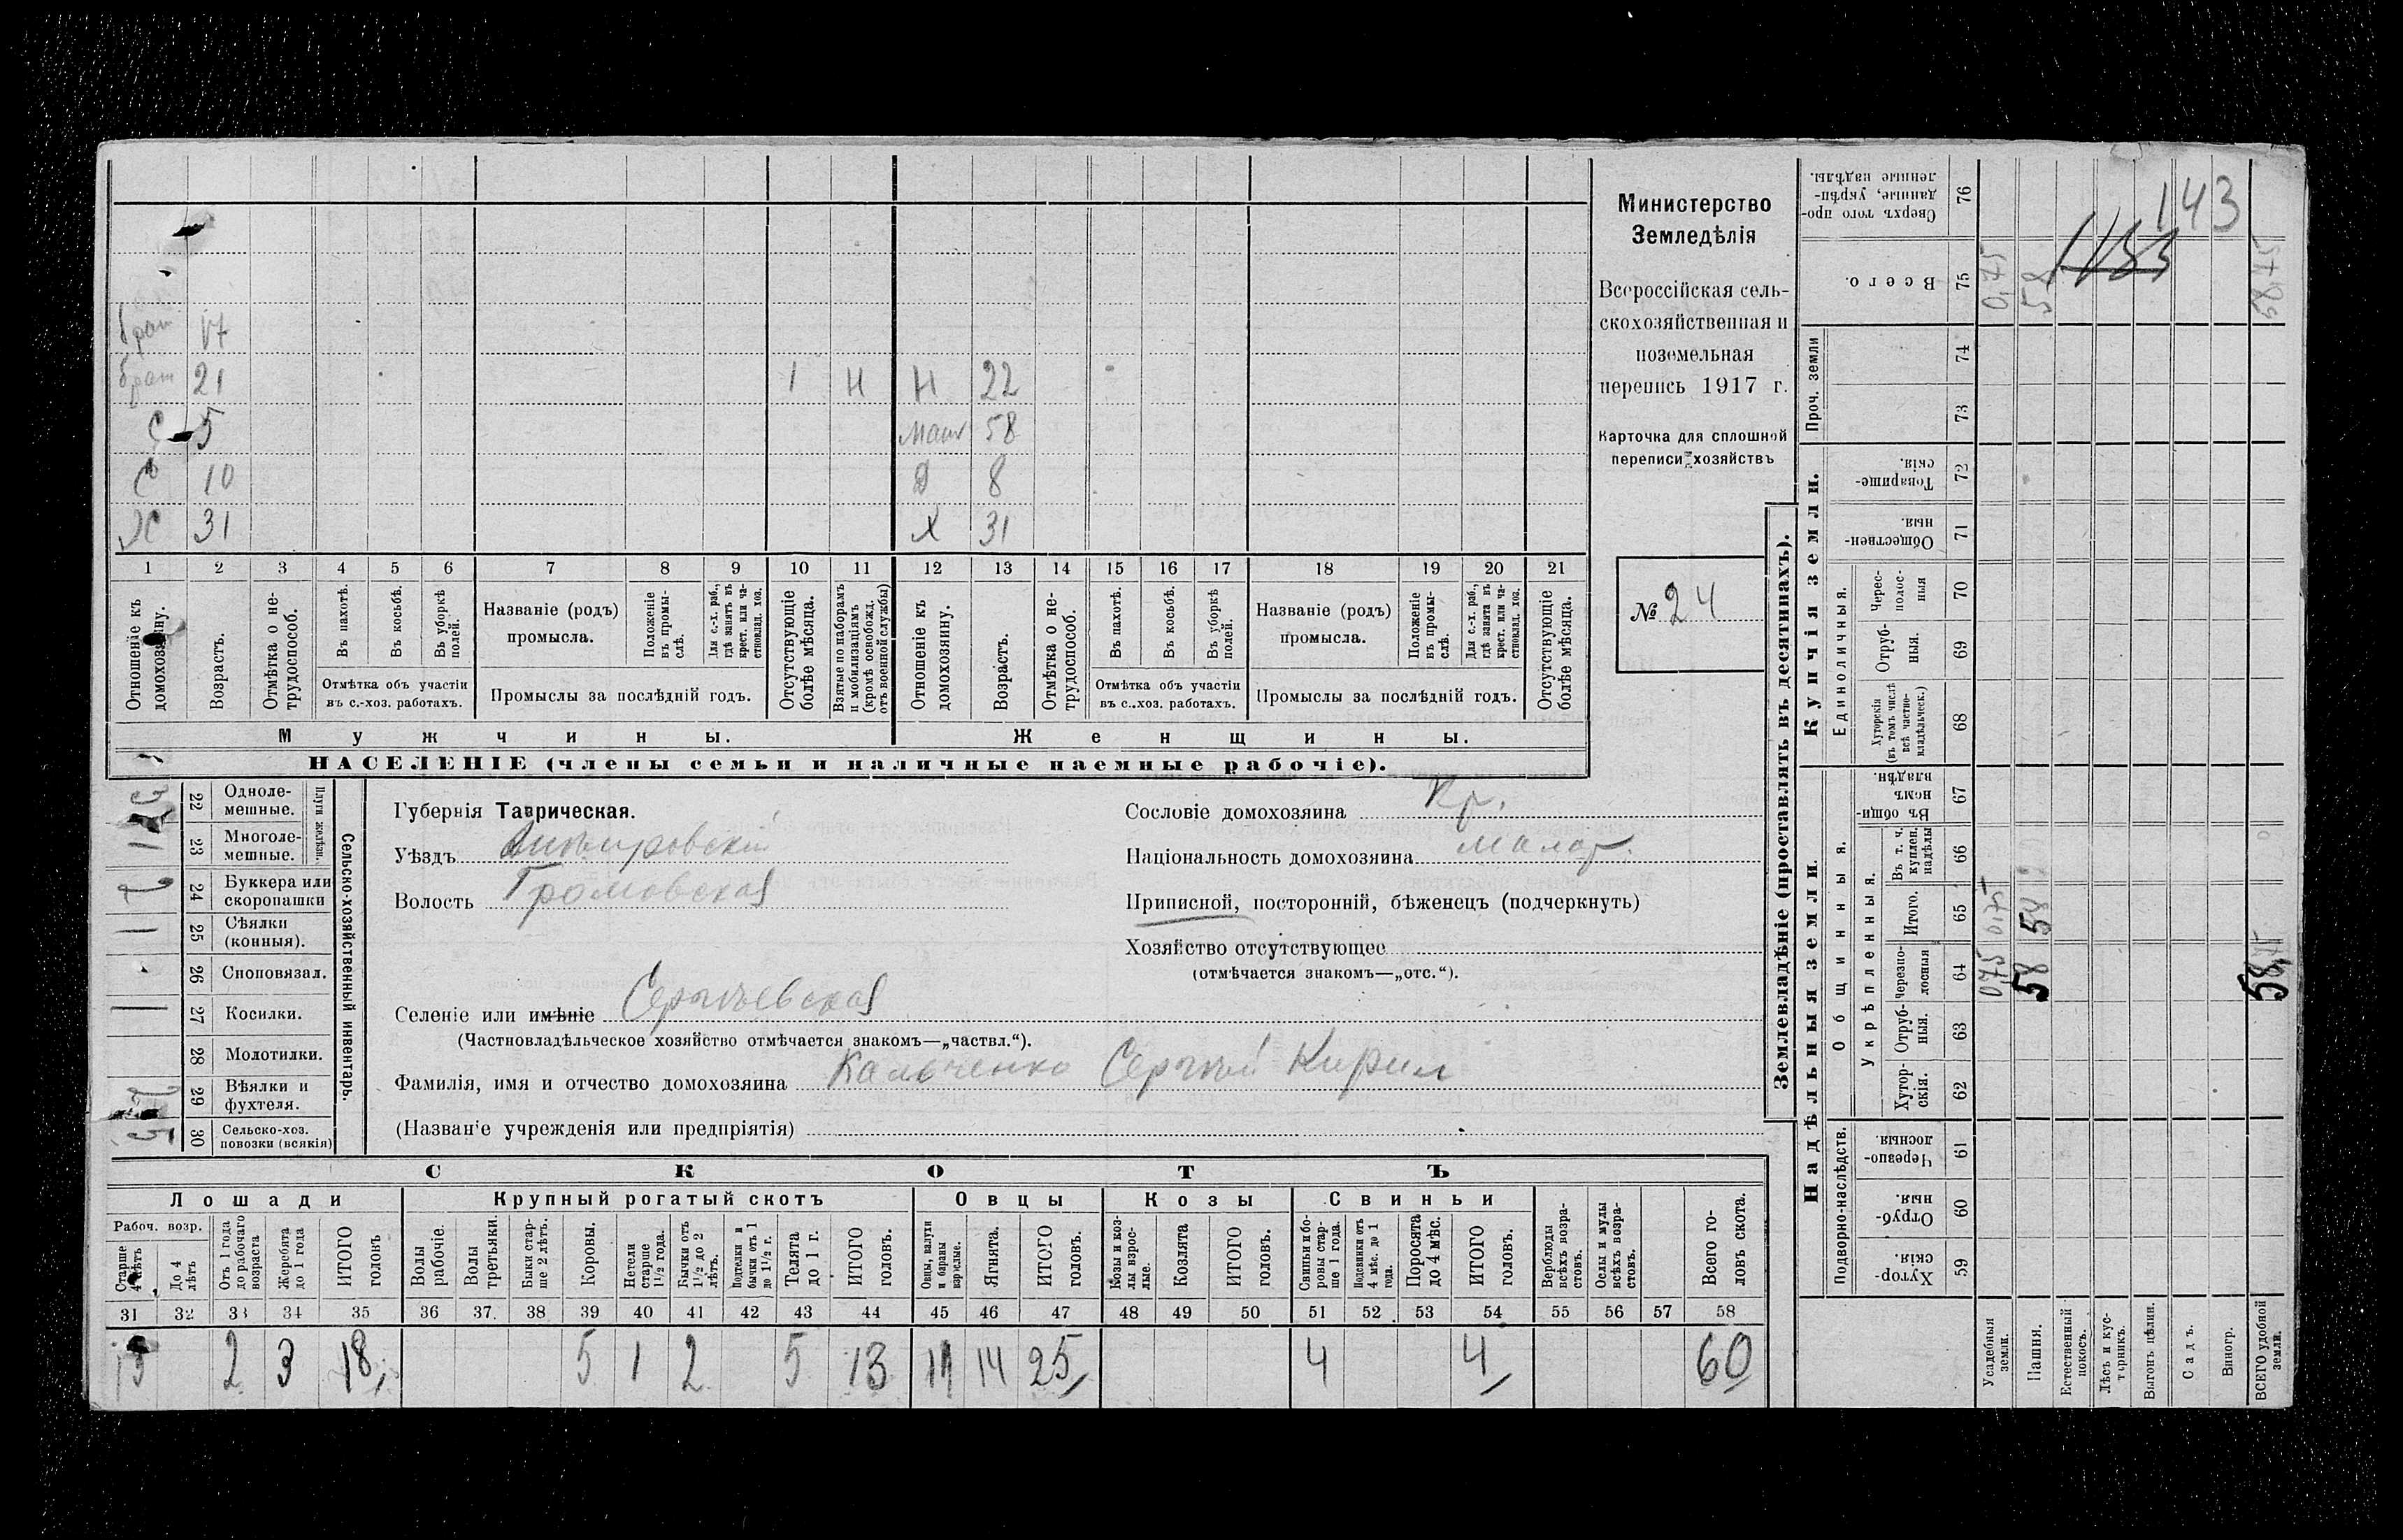 Министерство
Земледѣлія
Всероссійская сель-
скохозяйственная и
поземельная
перепись 1917 г.
Карточка для сплошной
переписи хозяйствъ
№ 24
143
брат 17
брат 21 1 Н Н 22
С 5 мать 58
С 10 Д 8
Х 31 Х 31
1 2 3 4 5 6 7 8 9 10 11 12 13 14 15 16 17 18 19 20 21
Отношеніе къ домохозяину.
Возрастъ.
Отмѣтка о не-трудоспособ.
Въ пахотѣ.
Въ косьбѣ.
Въ уборкѣ полей.
Отмѣтка объ участіи
въ с.-хоз. работахъ.
Названіе (родъ)
промысла.
Положеніе въ промы-слѣ.
Для с.-х. раб., гдѣ занятъ въ крест. или ча-стновлад. хоз.
Промыслы за послѣдній годъ.
Отсутствующіе болѣе мѣсяца.
Взятые по наборамъ и мобилизаціямъ (кромѣ освобожд. отъ военной службы)
Отношеніе къ домохозяину.
Возрастъ.
Отмѣтка о не-трудоспособ.
Въ пахотѣ.
Въ косьбѣ.
Въ уборкѣ полей.
Отмѣтка объ участіи
въ с.-хоз. работахъ.
Названіе (родъ)
промысла.
Положеніе въ промы-слѣ.
Для с.-х. раб., гдѣ занята въ крест. или ча-стновлад. хоз.
Промыслы за послѣдній годъ.
Отсутствующіе болѣе мѣсяца.
Мужчины. Женщины.
НАСЕЛЕНІЕ (члены семьи и наличные наемные рабочіе).
22 Одноле-мешные.
23 Многоле-мешные.
Плуги желѣзн.
24 Буккера или скоропашки
25 Сѣялки (конныя).
26 Сноповязал.
27 Косилки.
28 Молотилки.
29 Вѣялки и фухтеля.
30 Сельско-хоз. повозки (всякія)
Сельско-хозяйственный инвентарь.
Губернія Таврическая.
Уѣздъ Днѣпровскій
Волость Громовская
Селеніе или имѣніе Сергѣевская
(Частновладѣльческое хозяйство отмѣчается знакомъ—„частвл.“).
Фамилія, имя и отчество домохозяина Кальченко Сергѣй Кирил
(Названіе учрежденія или предпріятія)
Сословіе домохозяина Кр.
Національность домохозяина малор.
Приписной, посторонній, бѣженецъ (подчеркнуть)
Хозяйство отсутствующее
(отмѣчается знакомъ—„отс.“).
СКОТЪ
Лошади Крупный рогатый скотъ Овцы Козы Свиньи
Рабоч. возр.
Старше 4 лѣтъ
До 4 лѣтъ
Отъ 1 года до рабочаго возраста
Жеребята до 1 года
ИТОГО головъ
Волы рабочіе.
Волы третьяки.
Быки стар-ше 2 лѣтъ.
Коровы.
Нетели старше 1½ года.
Бычки отъ 1½ до 2 лѣтъ.
Подтелки и бычки отъ 1 до 1½ г.
Телята до 1 г.
ИТОГО головъ.
Овцы, валухи и бараны взрослые.
Ягнята.
ИТОГО головъ.
Козы и коз-лы взрос-лые.
Козлята
ИТОГО головъ.
Свиньи и бо-ровы стар-ше 1 года.
Подсвинки отъ 4 мѣс. до 1 года.
Поросята до 4 мѣс.
ИТОГО головъ.
Верблюды всѣхъ возра-стовъ.
Ослы и мулы всѣхъ возра-стовъ.
Всего го-ловъ скота.
31 32 33 34 35 36 37. 38 39 40 41 42 43 44 45 46 47 48 49 50 51 52 53 54 55 56 57 58
13 2 3 18 5 1 2 5 13 11 14 25 4 4 60
Землевладѣніе (проставлять въ десятинахъ).
Сверхъ того про-данные, укрѣп-ленные надѣлы. 76
Всего. 75 0,75 58 58,75
Проч. земли 74
73
Купчія земли.
Товарище-скія. 72
Обществен-ныя. 71
Единоличныя.
Черес-полос-ныя 70
Отруб-ныя. 69
Хуторскія (въ томъ числѣ всѣ частно-владѣльческ.) 68
Надѣльныя земли.
Общинныя.
Въ общин-номъ владѣн. 67
Укрѣпленныя.
Въ т. ч. куплен. надѣлы 66
Итого. 65 0,75 58
Черезпо-лосныя 64 0,75 58 58,75
Отруб-ныя. 63
Хутор-скія. 62
Подворно-наслѣдств.
Черезпо-лосныя. 61
Отруб-ныя. 60
Хутор-скія. 59
Усадебныя земли.
Пашня.
Естественный покосъ.
Лѣсъ и кус-тарникъ.
Выгонъ цѣлин.
Садъ.
Виногр.
ВСЕГО удобной земли.